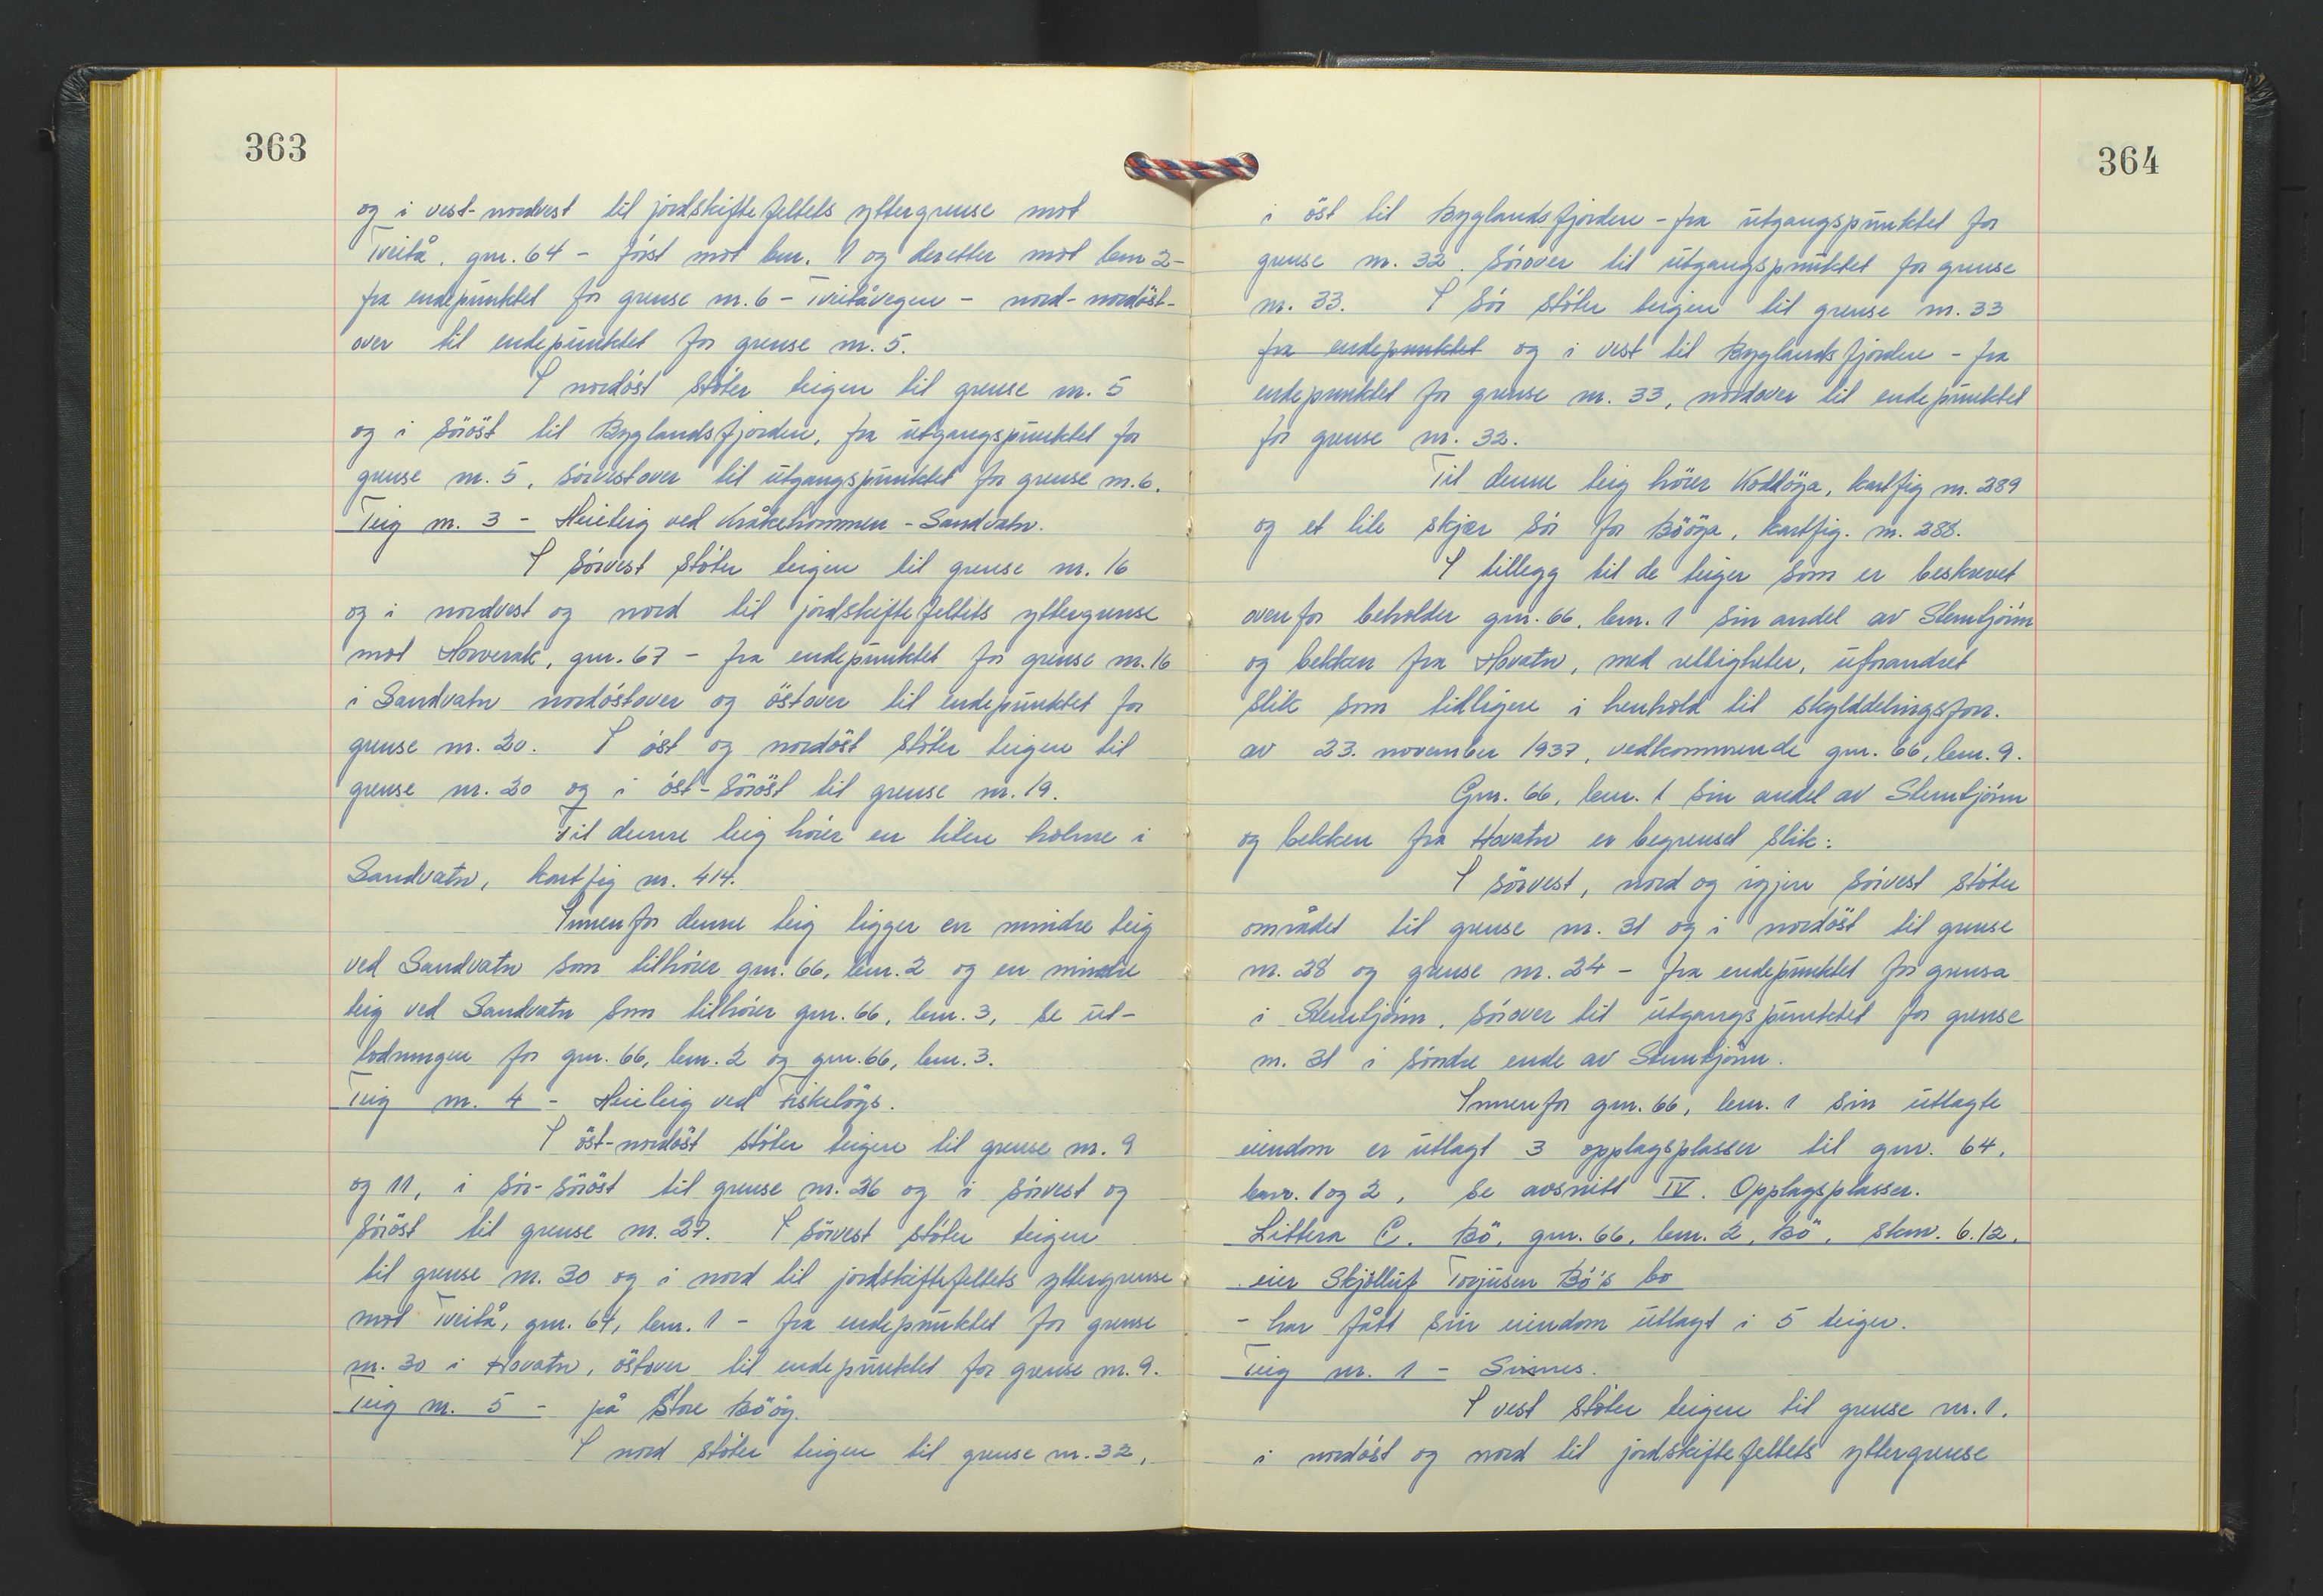 363
og i vest-nordvest til jordskiftefeltets yttergrense mot
Tveitå, gnr. 64 - først mot bnr. 1 og deretter mot bnr 2 -
fra endepunktet for grense nr. 6 - Tveitåvegen - nord-nordöst-
over til endepunktet for grense nr. 5.
I nordöst støter teigen til grense nr. 5
og i söröst til Byglandsfjorden, fra utgangspunktet for
grense nr. 5, sörvestover til utgangspunktet for grense nr. 6.
Teig nr. 3 - Heieteig ved Kråkehommen - Sandvatn.
I sörvest støter teigen til grense nr. 16
og i nordvest og nord til jordskiftefeltets yttergrense
mot Horverak, gnr. 67 - fra endepunktet for grense nr. 16
i Sandvatn nordöstover og östover til endepunktet for
grense nr. 20. I öst og nordöst støter teigen til
grense nr. 20 og i öst-söröst til grense nr. 19.
Til denne teig hörer en liten holme i
Sandvatn, kartfig nr. 414.
Innenfor denne teig ligger en mindre teig
ved Sandvatn som tilhörer gnr. 66, bnr. 2 og en mindre
teig ved Sandvatn som tilhörer gnr. 66, bnr. 3, se ut-
lodningen for gnr. 66, bnr. 2 og gnr. 66, bnr. 3.
Teig nr. 4 - Heieteig ved Fiskelögs.
I öst-nordöst støter teigen til grense nr. 9
og 11, i sör-söröst til grense nr. 26 og i sörvest og
söröst til grense nr. 27. I sörvest støter teigen
til grense nr. 30 og i nord til jordskiftefeltets yttergrense
mot Tveitå, gnr. 64, bnr. 1 - fra endepunktet for grense
nr. 30 i Hovatn, östover til endepunktet for grense nr. 9.
Teig nr. 5 - på Store Böög.
I nord støter teigen til grense nr. 32,
364
i öst til Byglandsfjorden - fra utgangspunktet for
grense nr. 32. Sörover til utgangspunktet for grense
nr. 33. I sör støter teigen til grense nr. 33
fra endepunktet og i vest til Byglandsfjorden - fra
endepunktet for grense nr. 33, nordover til endepunktet
for grense nr. 32.
Til denne teig hörer Koddöya, kartfig nr. 289
og et lite skjær sör for Bööya, kartfig. nr. 288.
I tillegg til de teiger som er beskrevet
ovenfor beholder gnr. 66, bnr. 1 sin andel av Stemtjönn
og bekken fra Hovatn, med rettigheter, uforandret
slik som tidligere i henhold til skylddelingsforr.
av 23. november 1937, vedkommende gnr. 66, bnr. 9.
Gnr. 66, bnr. 1 sin andel av Stemtjönn
og bekken fra Hovatn er begrenset slik:
I sörvest, nord og igjen sörvest støter
området til grense nr. 31 og i nordöst til grense
nr. 28 og grense nr. 24 - fra endepunktet for grensa
i Stemtjönn, sörover til utgangspunktet for grense
nr. 31 i söndre ende av Stemtjönn.
Innenfor gnr. 66, bnr. 1 sin utlagte
eiendom er utlagt 3 opplagsplasser til gnr. 64,
bnr. 1 og 2, se avsnitt IV. Opplagsplasser.
Littera C. Bö, gnr. 66, bnr. 2, Bö, skm. 6.12,
eier Skjölluf Torjusen Bö's bo
- har fått sin eiendom utlagt i 5 teiger.
Teig nr. 1 - Sines.
I vest støter teigen til grense nr. 1.
i nordöst og nord til jordskiftefeltets yttergrense